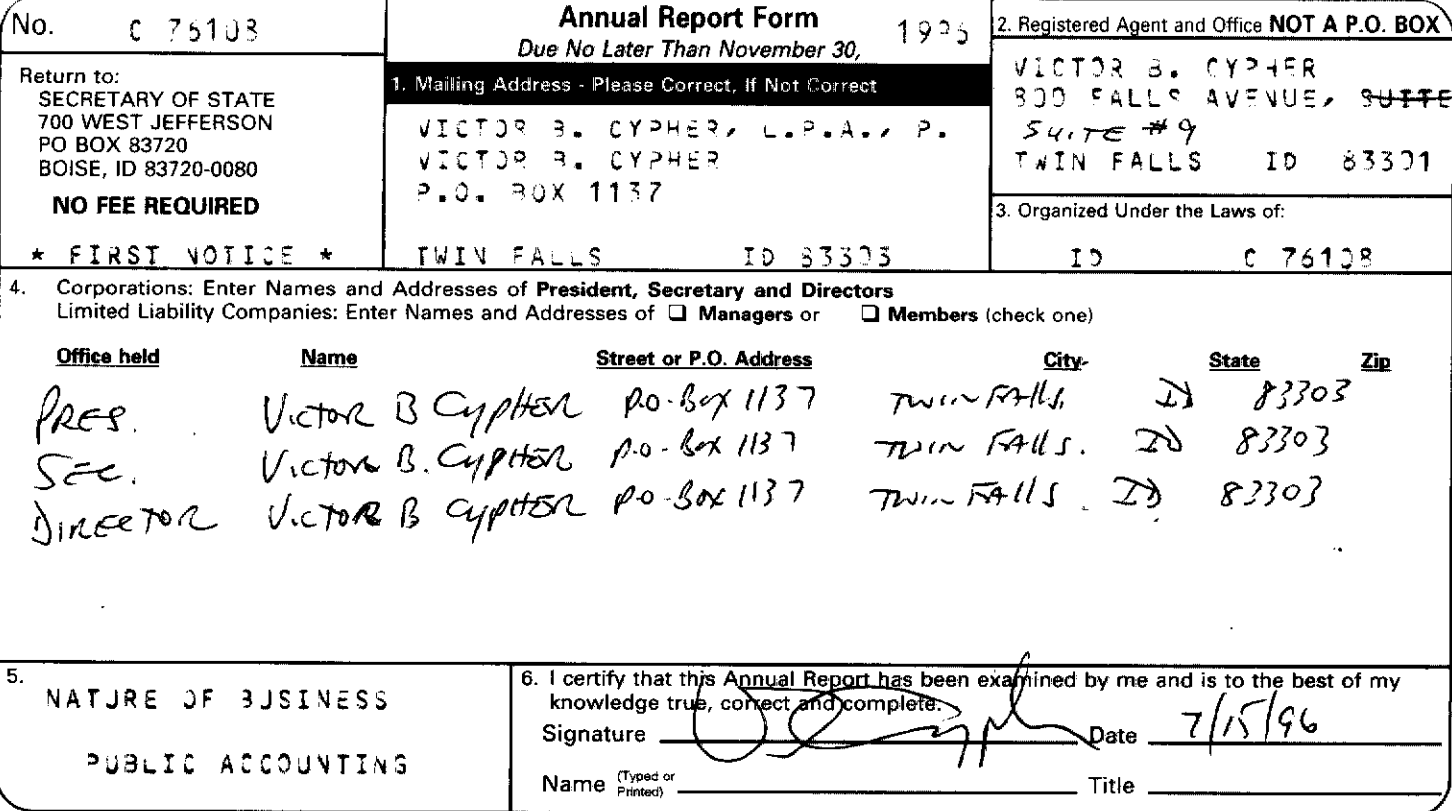 No. C 76108
Annual Report Form 1996
Due No Later Than November 30,
Return to:
SECRETARY OF STATE
700 WEST JEFFERSON
PO BOX 83720
BOISE, ID 83720-0080
NO FEE REQUIRED
* FIRST NOTICE *
1. Mailing Address - Please Correct, If Not Correct
VICTOR B. CYPHER, L.P.A., P.
VICTOR B. CYPHER
P.O. BOX 1137
TWIN FALLS ID 83303
2. Registered Agent and Office NOT A P.O. BOX
VICTOR B. CYPHER
800 FALLS AVENUE, SUITE
SUITE #9
TWIN FALLS ID 83301
3. Organized Under the Laws of:
ID C 76108
4. Corporations: Enter Names and Addresses of President, Secretary and Directors
Limited Liability Companies: Enter Names and Addresses of ❑ Managers or ❑ Members (check one)
Office held Name Street or P.O. Address City State Zip
PRES. Victor B Cypher P.O. Box 1137 Twin Falls. ID 83303
SEC. Victor B. Cypher P.O. Box 1137 Twin Falls. ID 83303
DIRECTOR Victor B Cypher P.O. Box 1137 Twin Falls. ID 83303
5. NATURE OF BUSINESS
PUBLIC ACCOUNTING
6. I certify that this Annual Report has been examined by me and is to the best of my
knowledge true, correct and complete.
Signature Date 7/15/96
Name (Typed or Printed) Title